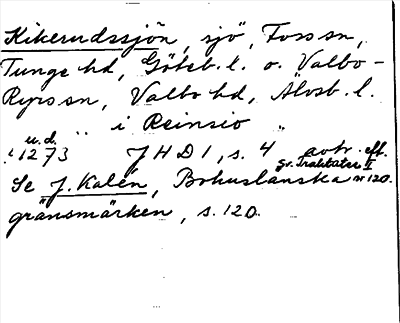 Kikerudssjön, sjö, Foss sn,
Tunge hd, Göteb. l. o. Valbo-
Ryrs sn, Valbo hd, Älvsb. l.
"i Reinsio"
u.d.
(1273 JHD 1, s. 4 avtr. eft.
Sv. Traktater II
Se J. Kalén, Bohuslänska nr 120.
gränsmärken, s. 120.